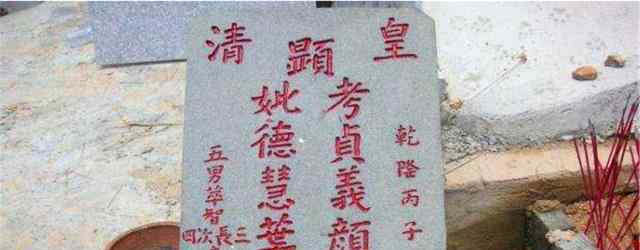 皇顯清
乾隆丙子
考貞義顏
妣德慧葉
五男萃智
三長次四